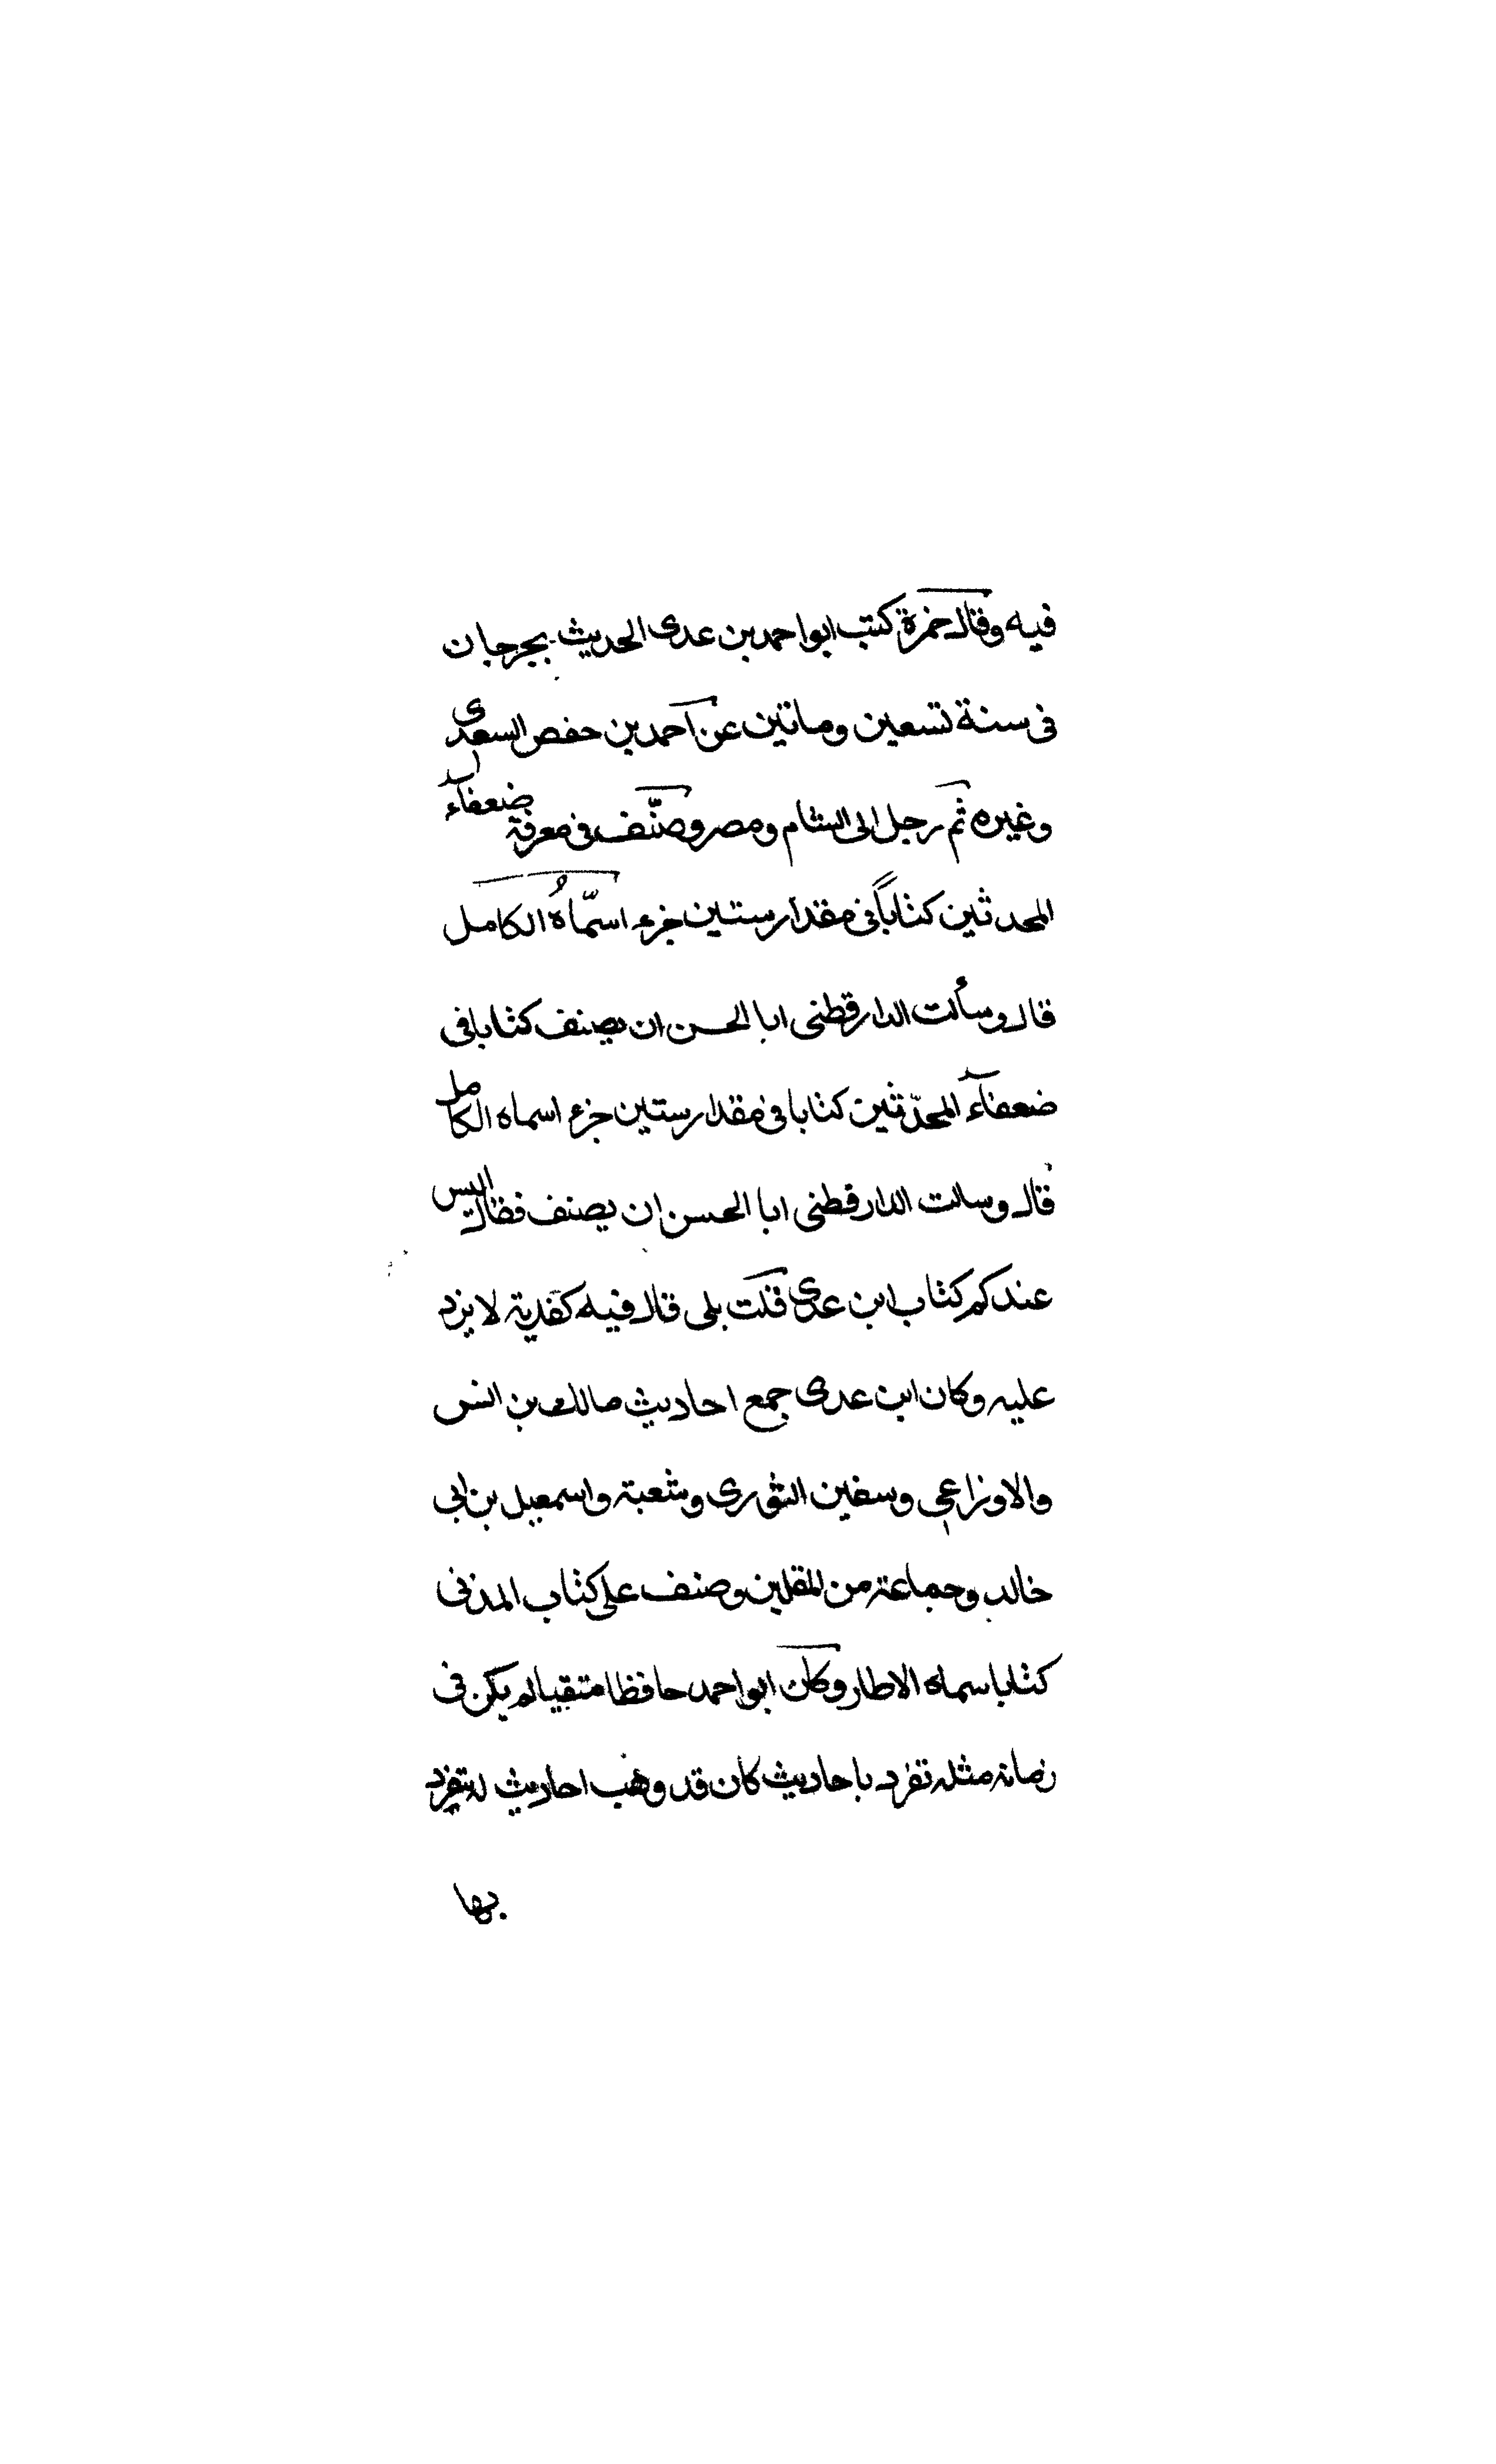 فيه وقال حمزة كتب ابو احمد بن عدى الحديث بجرجان
فى سنة تسعين ومائتين عن احمد بن حفص السعدى
وغيره ثم رحل الى الشام ومصر وصنّف فى معرفة ضعفآء
المحدثين كتاباً فى مقدار ستين جزء اسمّاهُ الكامل
قال وسألت الدارقطنى ابا الحسن ان يصنف كتابا فى
ضعفآء المحدّثين كتابا فى مقدار ستين جزء اسماه الكامل
قال وسالت الدارقطنى ابا الحسن ان يصنف فقال اليس
عندكم كتاب ابن عدى قلت بلى قال فيه كفاية لا يزد
عليه وكان ابن عدى جمع احاديث مالك بن انس
والاوزاعى وسفين الثورى وشعبة واسمعيل بن ابى
خالد وجماعة من المقلين وصنف على كتاب المزنى
كتابا سماه الاطار وكان ابو احمد حافظا متقيا لم يكن فى
زمانه مثله تفرد باحاديث كان قد وهب احاديث له يتفرد
بها